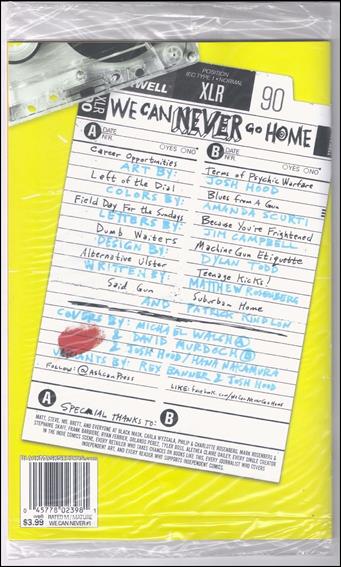 POSITION
IEC TYPE I • NORMAL
WELL
XLR
90
XLR
WE CAN NEVER GO HOME
A DATE
N/R OYES ONO
B DATE
N/R OYES ONO
Career Opportunities
Terms of Psychic Warfare
ART BY:
JOSH HOOD
Left of the Dial
Blues from A Gun
COLORS BY:
AMANDA SCURTI
Field Day For the Sundays
Because You're Frightened
LETTERS BY:
JIM CAMPBELL
Dumb Waiters
Machine Gun Etiquette
DESIGN BY:
DYLAN TODD
Alternative Ulster
Teenage Kicks!
WRITTEN BY:
MATTHEW ROSENBERG
Said Gun
Suburban Home
AND PATRICK KINDLON
COVERS BY: MICHAEL WALSH A
& DAVID MURDOCH B
& JOSH HOOD/HANA NAKAMURA
VARIANTS BY: REY BANNER & JOSH HOOD
FOLLOW: @AshcanPress
LIKE: facebook.com/WeCanNeverGoHome
A SPECIAL THANKS TO: B
MATT, STEVE, MR. BRETT, AND EVERYONE AT BLACK MASK, CARLA WYZGALA, PHIL & CHARLOTTE ROSENBERG, MARK ROSENBERG &
STEPHANIE SKAFF, FRANK BARBIERE, RYAN FERRIER, ORLANDO PEREZ, TYLER BOSS, ALETHEA CLAIRE DAILEY, EVERY SINGLE CREATOR
IN THE INDIE COMICS SCENE, EVERY RETAILER WHO TAKES CHANCES ON BOOKS LIKE THIS, EVERY JOURNALIST WHO COVERS
INDEPENDENT ART, AND EVERY READER WHO SUPPORTS INDEPENDENT COMICS.
0 45778 02398 1
RATED M / MATURE
$3.99 WE CAN NEVER #1